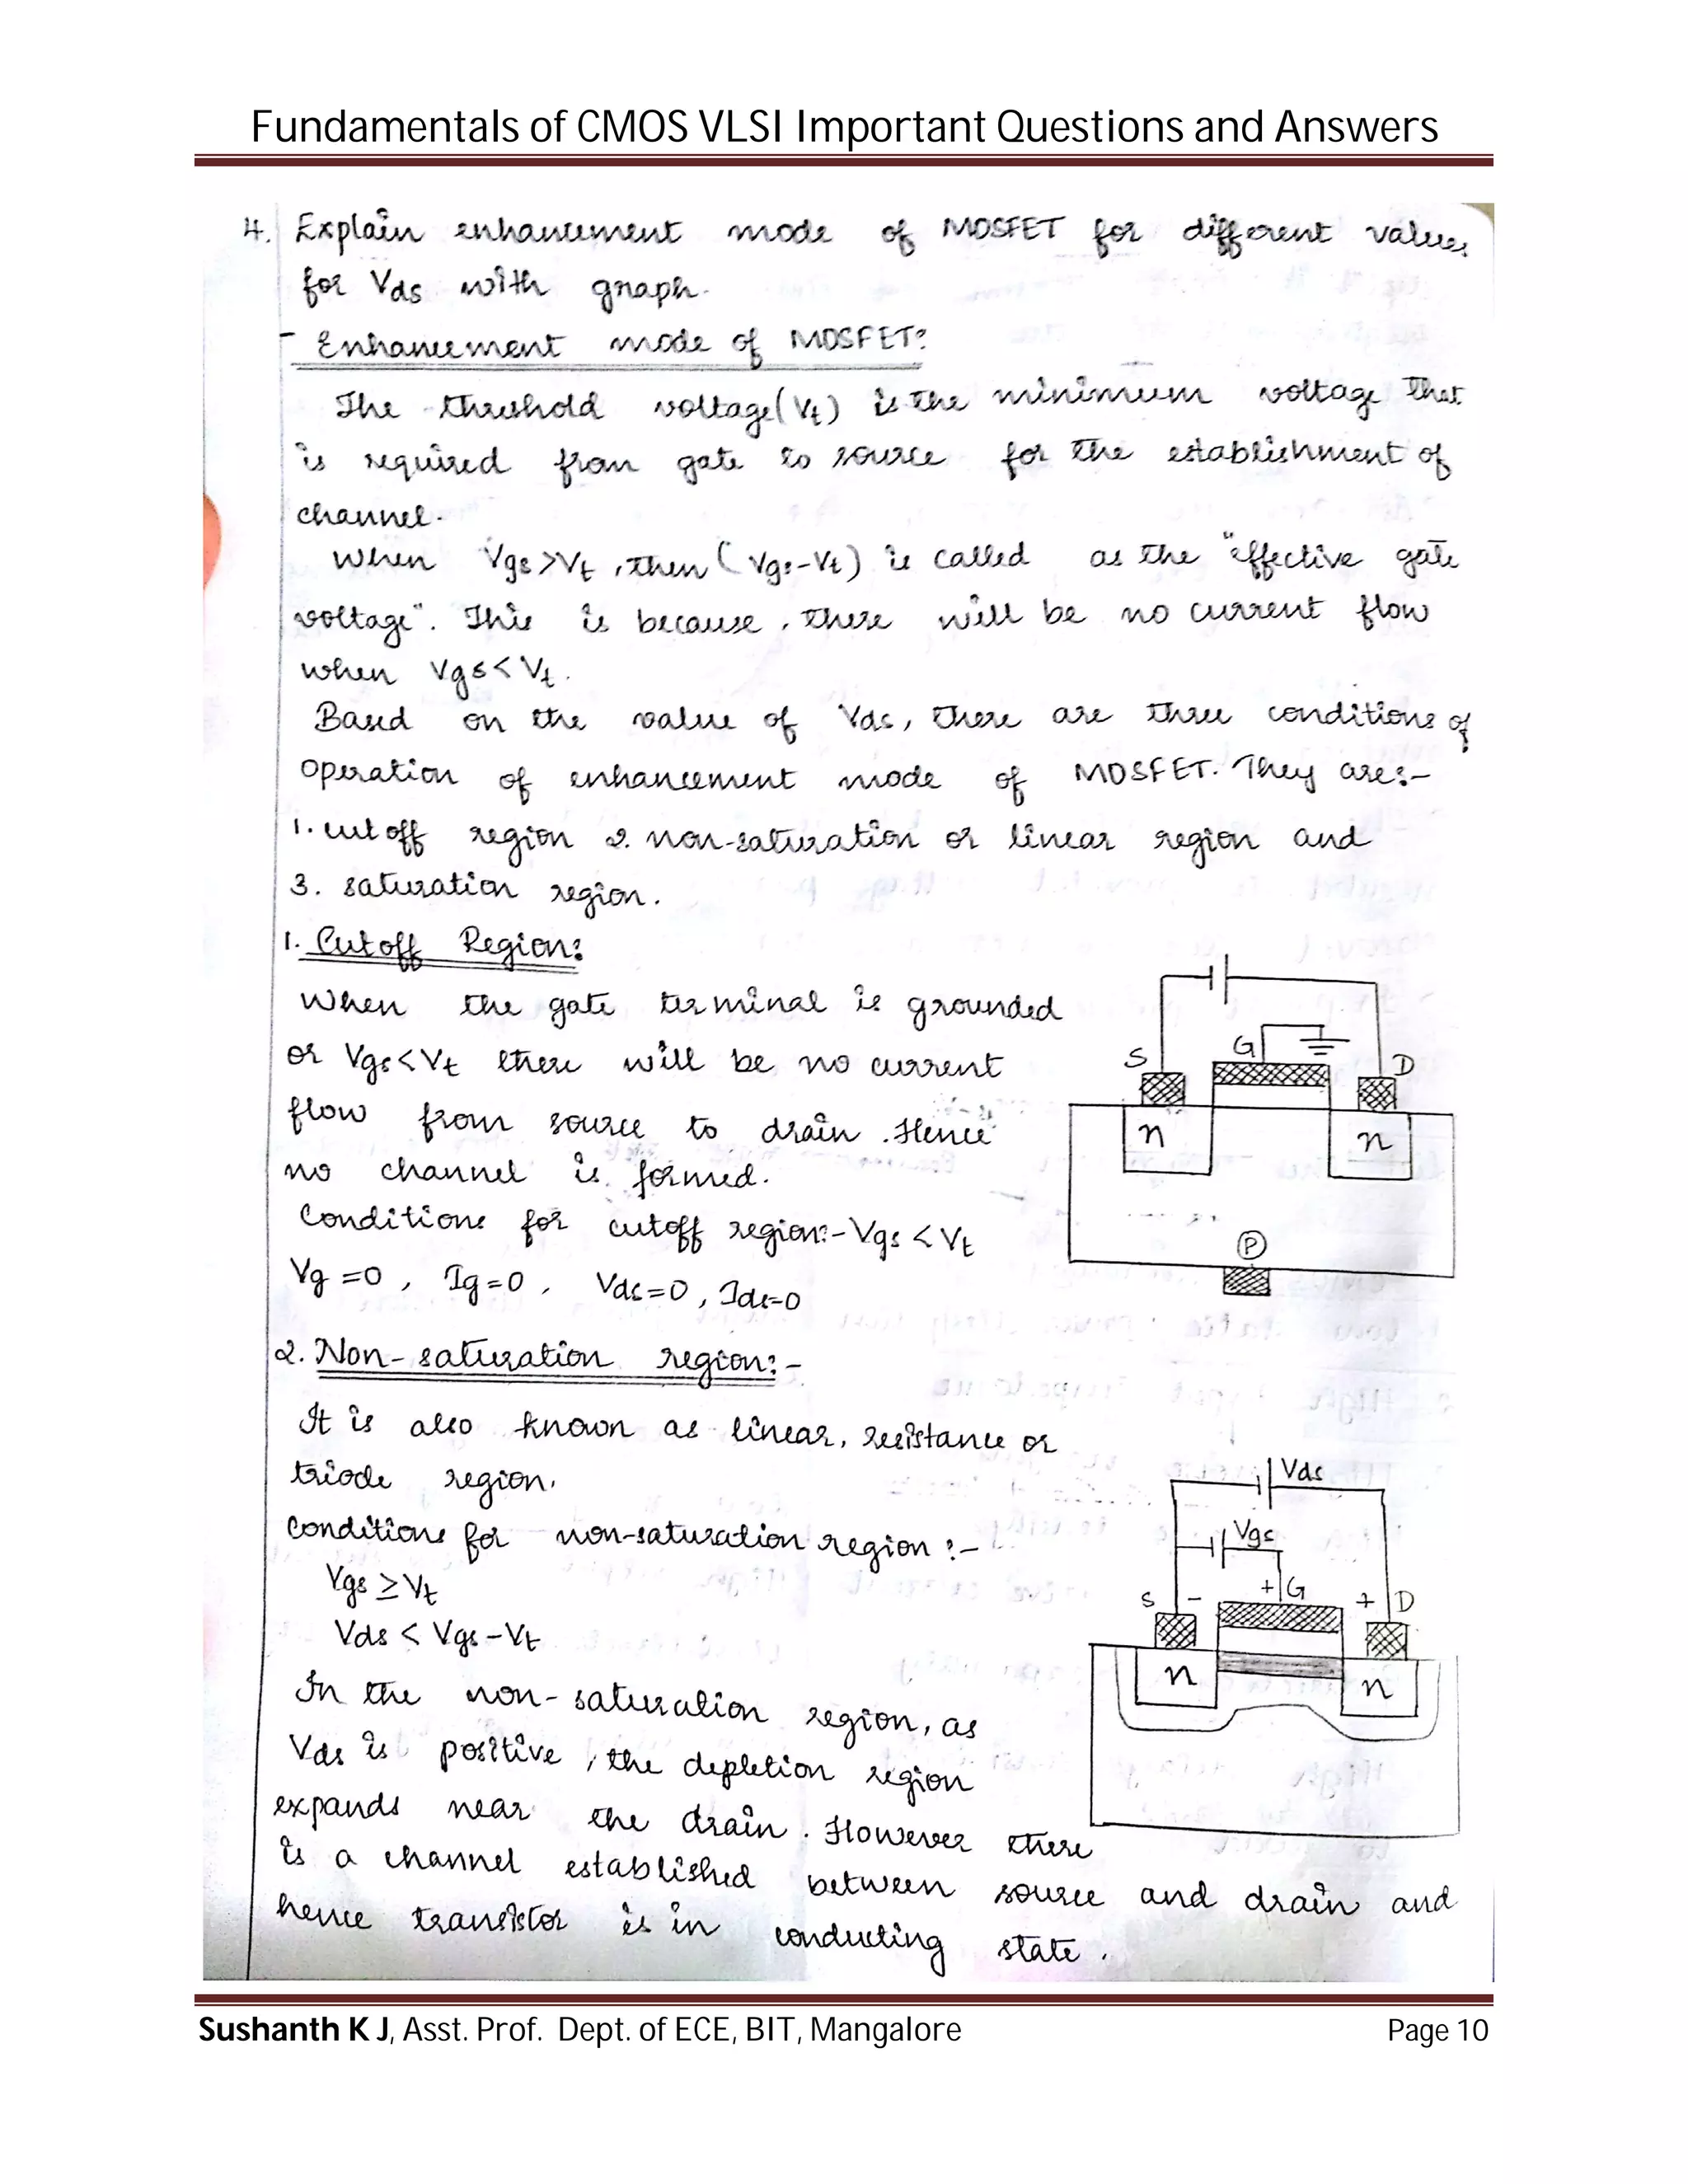 Fundamentals of CMOS VLSI Important Questions and Answers
4. Explain enhancement mode of MOSFET for different values
for Vds with graph.
- Enhancement mode of MOSFET:
The threshold voltage (Vt) is the minimum voltage that
is required from gate to source for the establishment of
channel.
When Vgs>Vt, then (Vgs-Vt) is called as the "effective gate
voltage". This is because, there will be no current flow
when Vgs<Vt.
Based on the value of Vds, there are three conditions of
operation of enhancement mode of MOSFET. They are:-
1. cut off region 2. non-saturation or linear region and
3. saturation region.
1. Cutoff Region:
When the gate terminal is grounded
or Vgs<Vt there will be no current
flow from source to drain. Hence
no channel is formed.
Conditions for cutoff region:- Vgs < Vt
Vg =0, Ig=0, Vds=0, Ids=0
S G D
n n
P
2. Non-saturation region:-
It is also known as linear, resistance or
triode region.
Conditions for non-saturation region :-
Vgs ≥ Vt
Vds < Vgs - Vt
In the non-saturation region, as
Vds is positive, the depletion region
expands near the drain. However there
is a channel established between source and drain and
hence transistor is in conducting state.
Vds
Vgs
S - + G + D
n n
Sushanth K J, Asst. Prof. Dept. of ECE, BIT, Mangalore Page 10